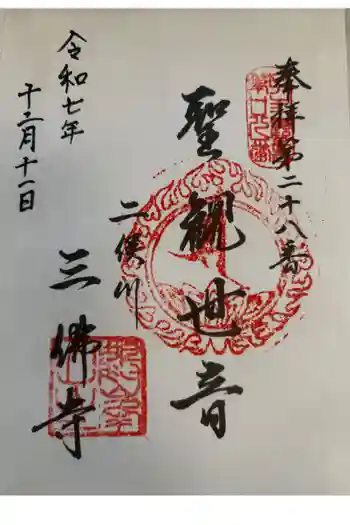 奉拝 第二十八番
聖観世音
二俣川
三佛寺
令和七年
十二月十一日